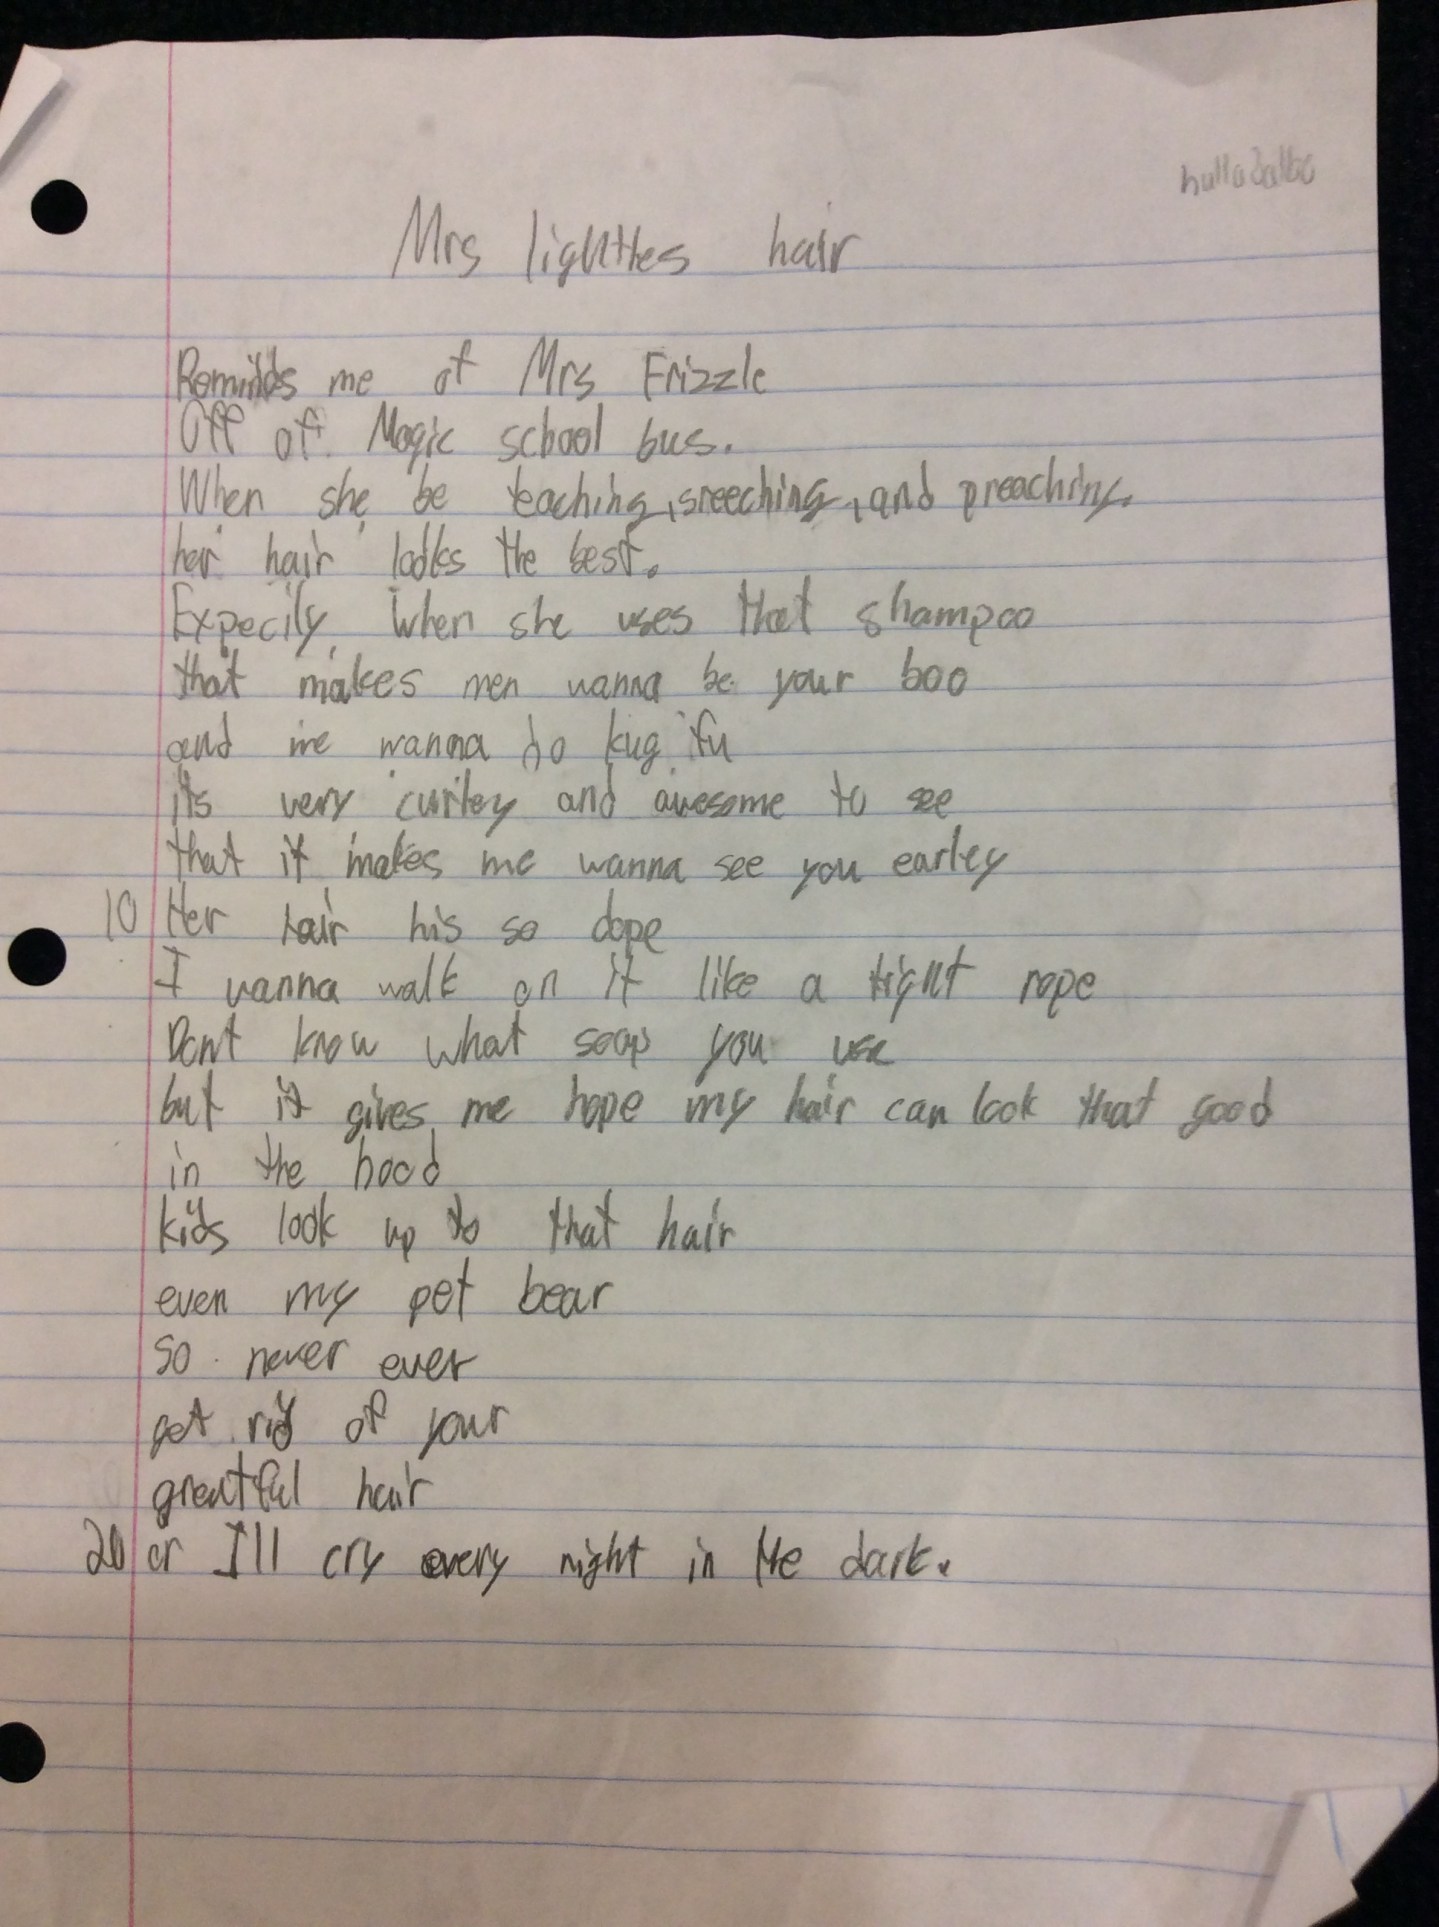 Mrs lighttes hair
Reminds me of Mrs Frizzle
Off of Magic school bus.
When she be teaching, sreeching, and preaching,
her hair looks the best.
Expecily when she uses that shampoo
that makes men wanna be your boo
and me wanna do kug fu
its very curley and awesome to see
that it makes me wanna see you earley
10 Her hair his so dope
I wanna walk on it like a tight rope
Dont know what soap you use
but it gives me hope my hair can look that good
in the hood
kids look up to that hair
even my pet bear
so never ever
get rid of your
greatful hair
20 or I'll cry every night in the dark.